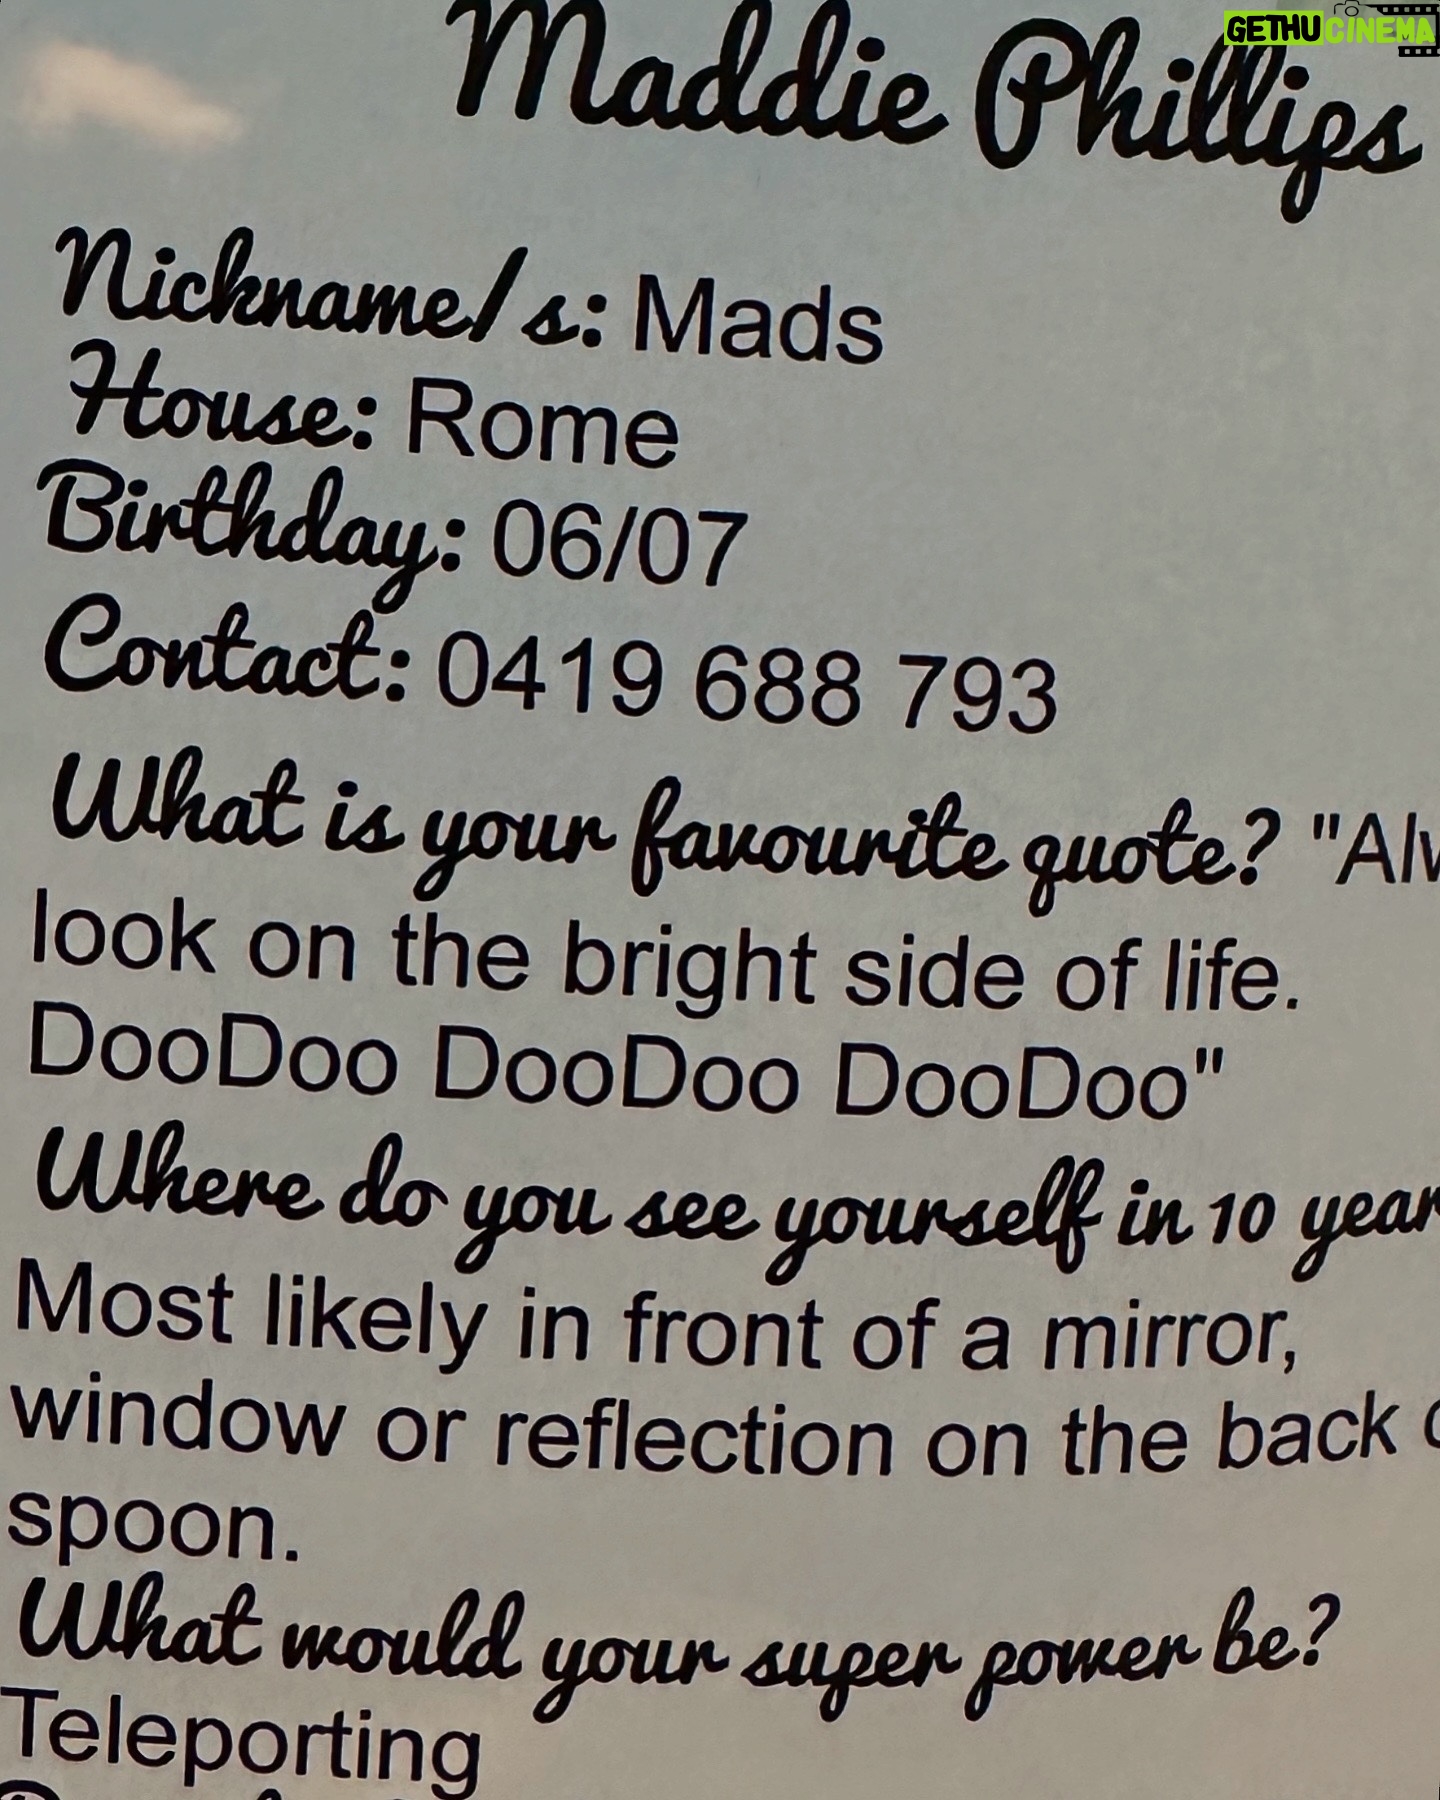 GETHUCINEMA
Maddie Phillips
Nickname/s: Mads
House: Rome
Birthday: 06/07
Contact: 0419 688 793
What is your favourite quote? "Alw
look on the bright side of life.
DooDoo DooDoo DooDoo"
Where do you see yourself in 10 year
Most likely in front of a mirror,
window or reflection on the back
spoon.
What would your super power be?
Teleporting